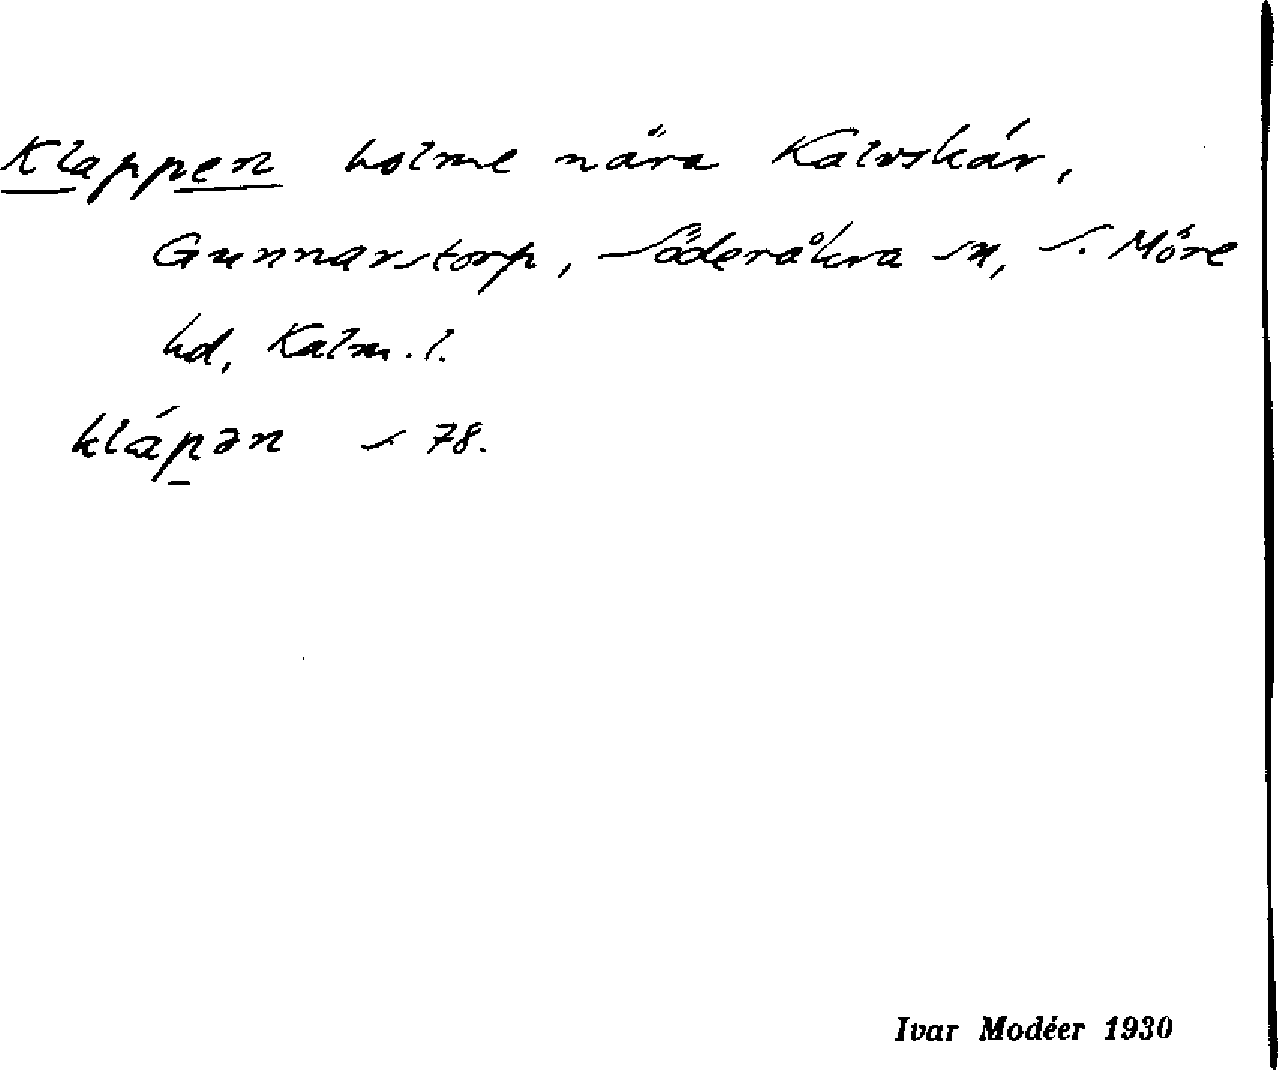 Klappen holme nära Kalvskär,
Gunnarstorp, Söderåkra sn, S. Möre
hd, Kalm. l.
klápən s 78.
Ivar Modéer 1930